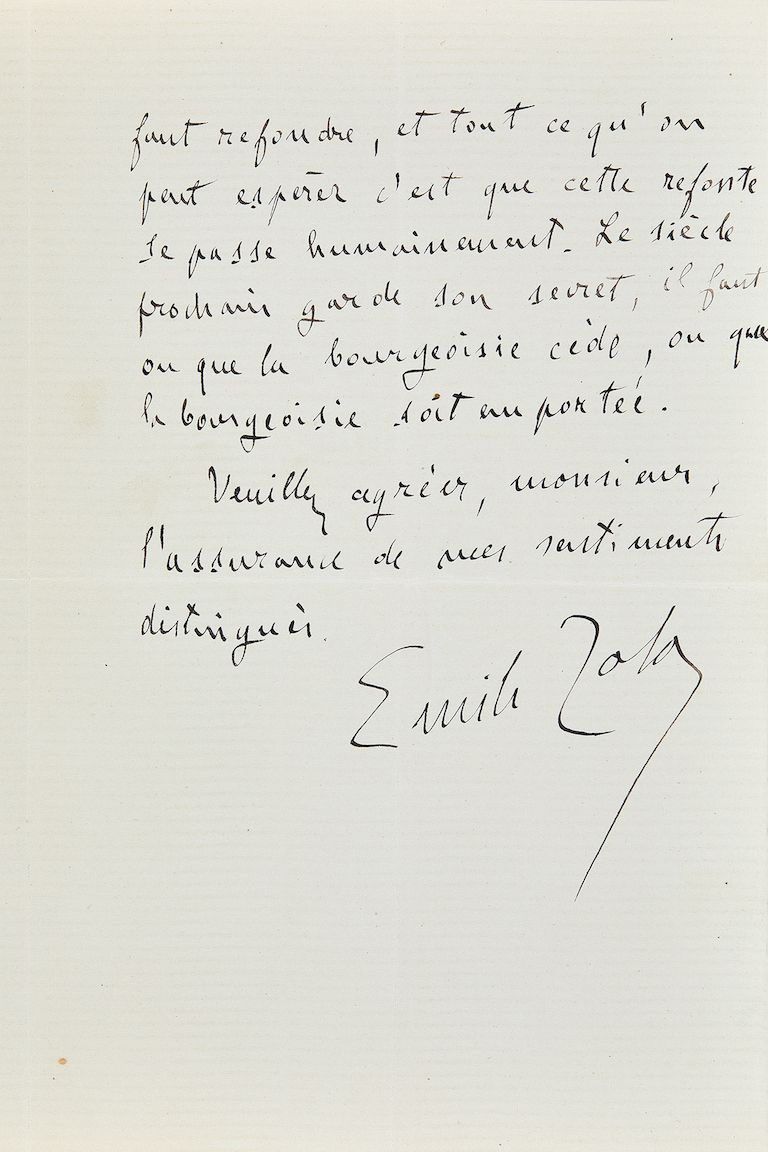 faut refondre, et tout ce qu'on
peut espérer c'est que cette refonte
se passe humainement. Le siècle
prochain garde son secret, il faut
ou que la bourgeoisie cède, ou que
la bourgeoisie soit emportée.
Veuillez agréer, monsieur,
l'assurance de mes sentiments
distingués.
Emile Zola